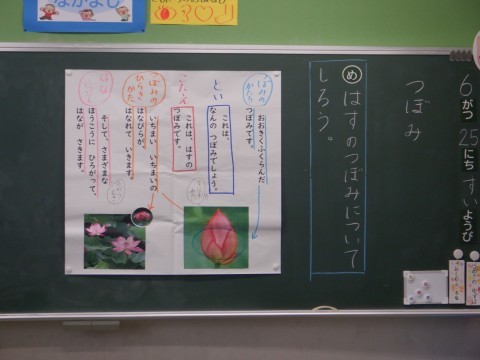 なかよし
6がつ25にちすいようび
つぼみ
めはすのつぼみについて
しろう。
つぼみの
かたち
おおきくふくらんだ
つぼみです。
とい
これは、
なんの つぼみでしょう。
こたえ
これは、はすの
つぼみです。
つぼみの
ひらきかた
いちまい いちまいの
はなびらが、
はなれて いきます。
そして、さまざまな
ほうこうに ひろがって、
はなが さきます。